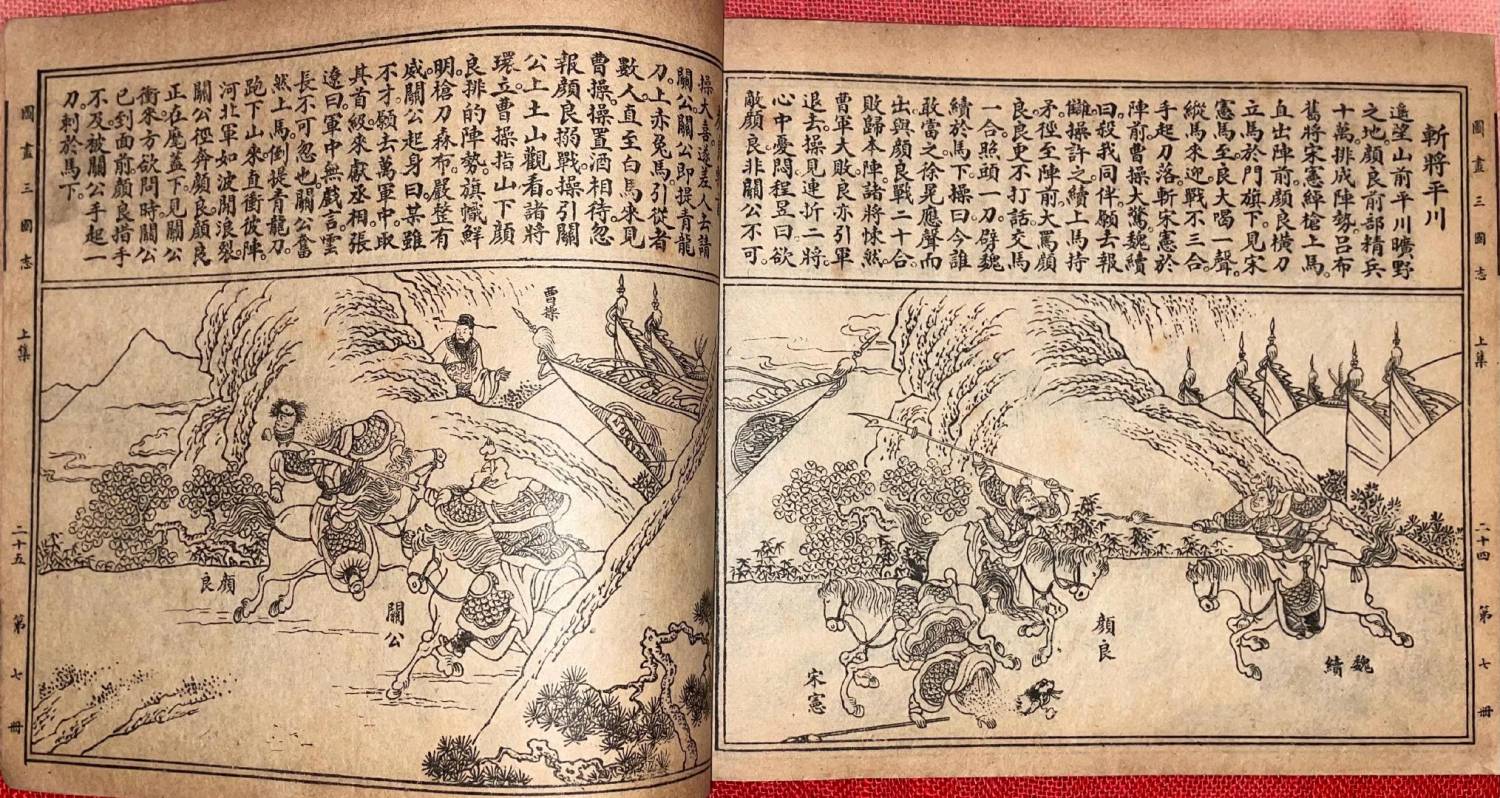 圖畫三國志 上集 二十四 第七冊
斬將平川
遥望山前平川曠野
之地。顏良前部精兵
十萬。排成陣勢。呂布
舊將宋憲綽槍上馬
直出陣前。顏良橫刀
立馬於門旗下。見宋
憲馬至。良大喝一聲。
縱馬來迎。戰不三合。
手起刀落。斬宋憲於
陣前。曹操大驚。魏續
曰殺我同伴。願去報
讎。操許之。續上馬持
矛。徑至陣前。大罵顏
良。良更不打話。交馬
一合。照頭一刀。劈魏
續於馬下。操曰今誰
敢當之。徐晃應聲而
出。與顏良戰二十合。
敗歸本陣。諸將悚然。
曹軍大敗。良亦引軍
退去。操見連折二將
心中憂悶。程昱曰欲
敵顏良。非關公不可。
魏續
顏良
宋憲
操大喜。遂差人去請
關公。關公即提青龍
刀。上赤兔馬。引從者
數人。直至白馬。來見
曹操。操置酒相待。忽
報顏良搦戰。操引關
公上土山觀看。諸將
環立。曹操指山下顏
良排的陣勢。旗幟鮮
明。槍刀森布。嚴整有
威。關公起身曰。某雖
不才。願去萬軍中取
其首級。來獻丞相。張
遼曰。軍中無戲言。雲
長不可忽也。關公奮
然上馬。倒提青龍刀。
跑下山來。直衝彼陣。
河北軍如波開浪裂。
關公徑奔顏良。顏良
正在麾蓋下。見關公
衝來。方欲問時。關公
已到面前。顏良措手
不及。被關公手起一
刀。刺於馬下。
曹操
關公
顏良
圖畫三國志 上集 二十五 第七冊